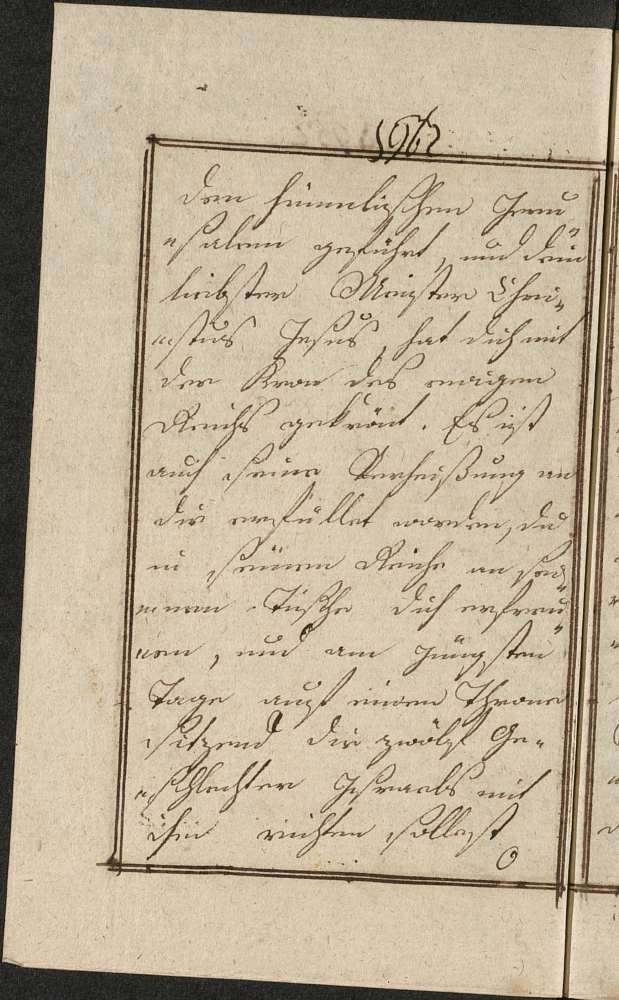 dem himmlischen Jeru„
„salem geführt, und dein
liebster Meister Chri„
„stus Jesus, hat dich mit
der Kron des ewigen
Reichs gekrönt. Es ist
auch seine Verheißung an
dir erfüllet worden, du
in seinem Reiche an sei„
„nem Tische dich erfreu„
„en, und am jüngsten
Tage auf einem Throne
sitzend die zwölf Ge„
„schlechter Israels mit
ihm richten sollest